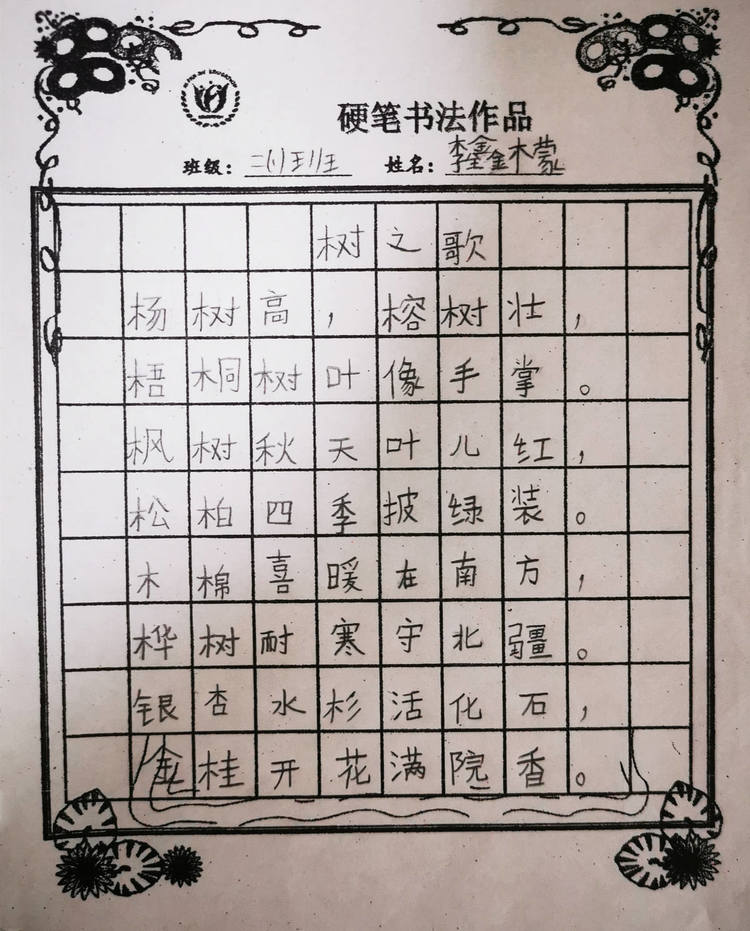 硬笔书法作品
班级： 姓名：
树之歌
杨树高，榕树壮，
梧桐树叶像手掌。
枫树秋天叶儿红，
松柏四季披绿装。
木棉喜暖在南方，
桦树耐寒守北疆。
银杏水杉活化石，
金桂开花满院香。